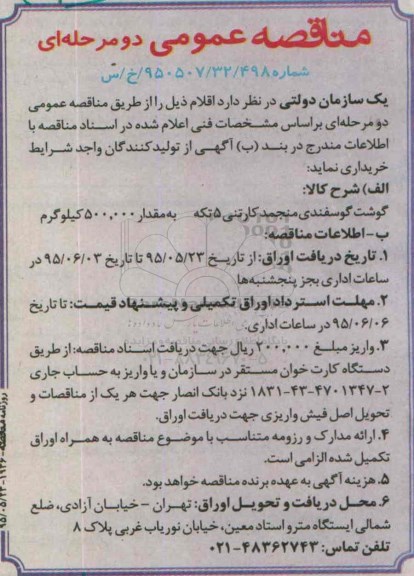 مناقصه عمومی دو مرحله‌ای
شماره ۹۵۰۵۰۷/۳۲/۴۹۸/خ/س
یک سازمان دولتی در نظر دارد اقلام ذیل را از طریق مناقصه عمومی
دو مرحله‌ای براساس مشخصات فنی اعلام شده در اسناد مناقصه با
اطلاعات مندرج در بند (ب) آگهی از تولیدکنندگان واجد شرایط
خریداری نماید:
الف) شرح کالا:
گوشت گوسفندی منجمد کارتنی ۵ تکه به مقدار ۵۰۰,۰۰۰ کیلوگرم
ب- اطلاعات مناقصه:
۱. تاریخ دریافت اوراق: از تاریخ ۹۵/۰۵/۲۳ تا تاریخ ۹۵/۰۶/۰۳ در
ساعات اداری بجز پنجشنبه‌ها
۲. مهلت استرداد اوراق تکمیلی و پیشنهاد قیمت: تا تاریخ
۹۵/۰۶/۰۶ در ساعات اداری.
۳. واریز مبلغ ۲۰۰,۰۰۰ ریال جهت دریافت اسناد مناقصه: از طریق
دستگاه کارت خوان مستقر در سازمان و یا واریز به حساب جاری
۱۸۳۱-۴۳-۴۷۰۱۳۴۷-۲ نزد بانک انصار جهت هر یک از مناقصات و
تحویل اصل فیش واریزی جهت دریافت اوراق.
۴. ارائه مدارک و رزومه متناسب با موضوع مناقصه به همراه اوراق
تکمیل شده الزامی است.
۵. هزینه آگهی به عهده برنده مناقصه خواهد بود.
۶. محل دریافت و تحویل اوراق: تهران - خیابان آزادی، ضلع
شمالی ایستگاه مترو استاد معین، خیابان نوریاب غربی پلاک ۸
تلفن تماس: ۴۸۳۶۲۷۴۳-۰۲۱